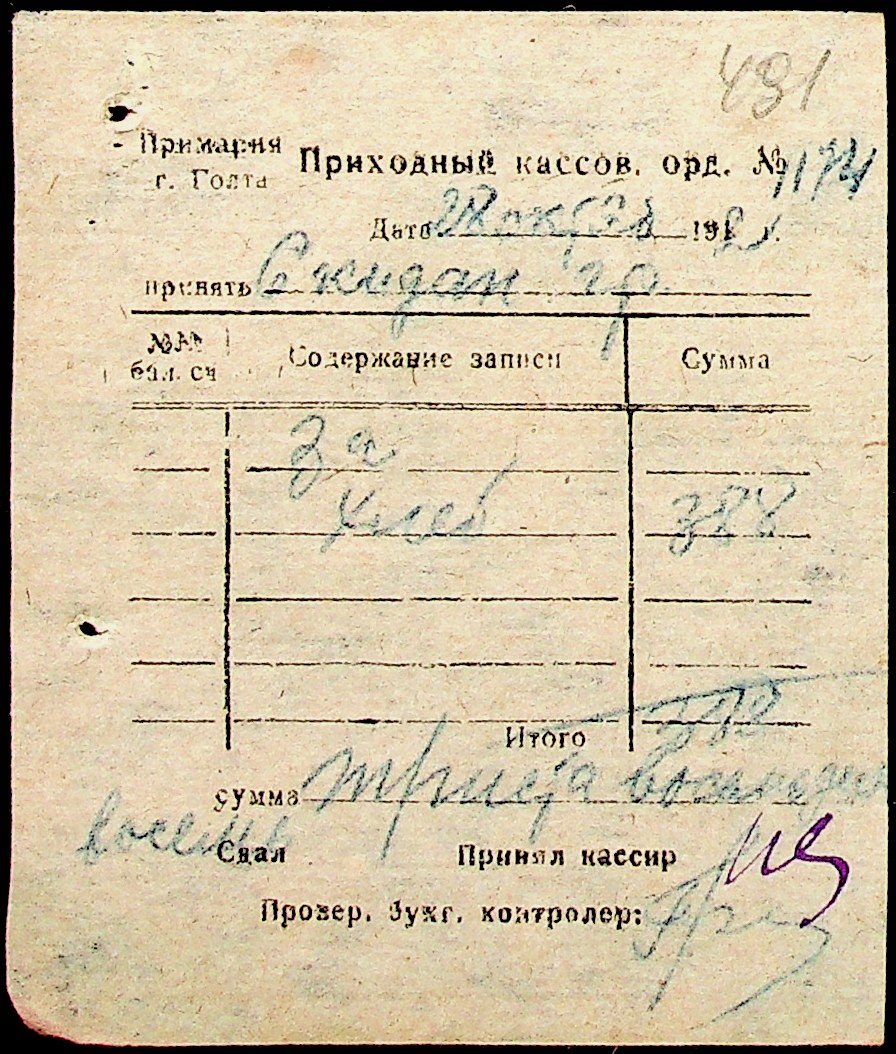 491
Примария
г. Голта
Приходный кассов. орд. № 1174
Дата 28 окт 194 2 г.
принять Скидан гр
№№
бал. сч
Содержание записи
Сумма
За
хлеб 388
Итого 388
сумма триста восемьдесят
восемь
Сдал Принял кассир
Провер. бухг. контролер: